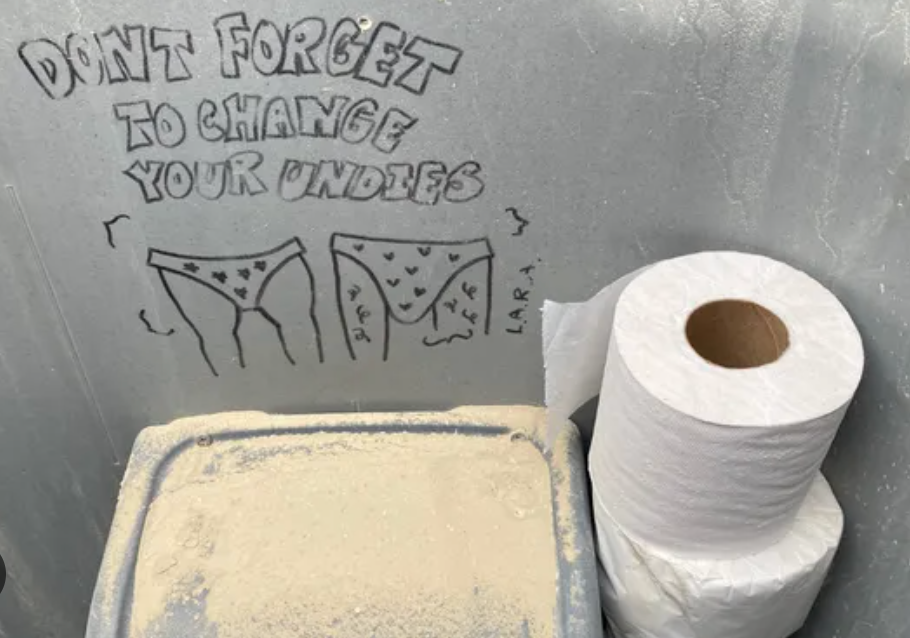 DONT FORGET
TO CHANGE
YOUR UNDIES
L.A.R.A.